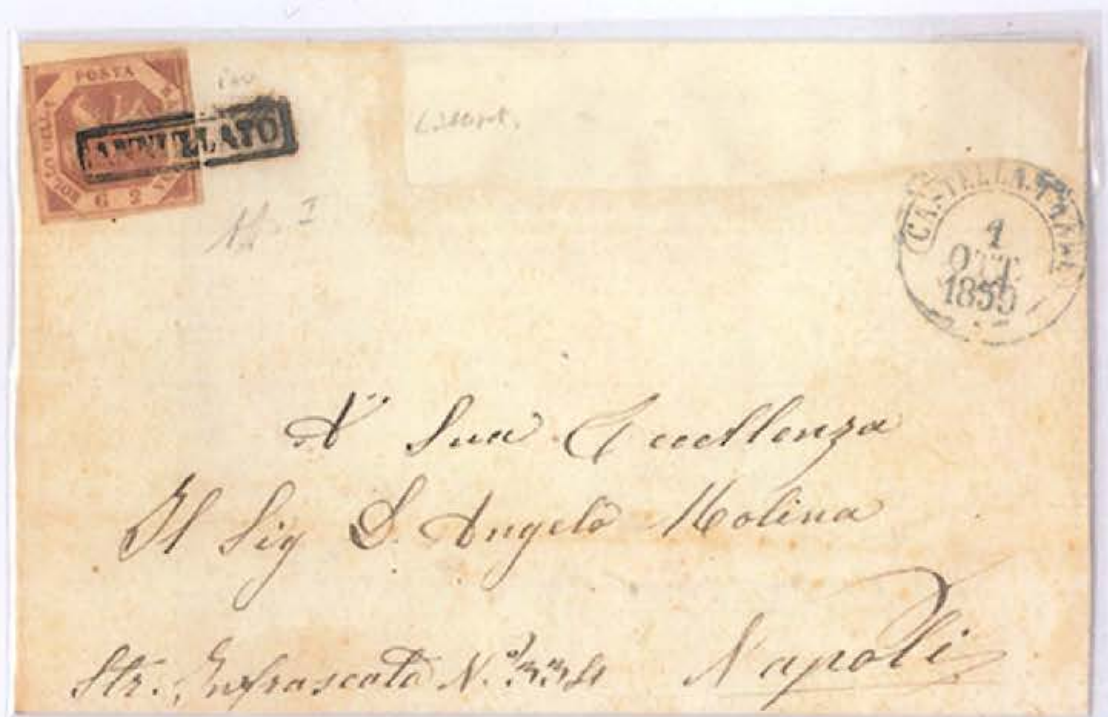 POSTA
BOLLO DELLA
G 2
ANNULLATO
CASTELLAMARE
1
OTT
1859
A Sua Eccellenza
Il Sig D. Angelo Molina
Str. Infrascata N.° 334
Napoli